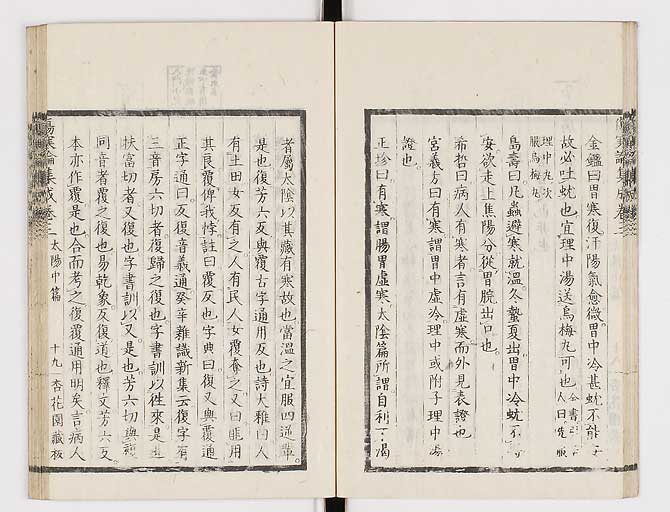 金鑑曰胃寒復汗陽氣愈微胃中冷甚蚘不能
故必吐蚘也宜理中湯送烏梅丸可也
理中丸次
服烏梅丸
島壽曰凡蟲避寒就溫冬蟄夏出胃中冷蚘不
安欲走上焦陽分從胃脘出口也
希哲曰病人有寒者言有虛寒而外見表證也
宮義方曰有寒謂胃中虛冷理中或附子理中湯
證也
正珍曰有寒謂腸胃虛寒太陰篇所謂自利不渴
者屬太陰以其藏有寒故也當溫之宜服四逆輩
是也復芳六反與覆古字通用反也詩大雅曰人
有土田女反有之人有民人女覆奪之又曰匪用
其良覆俾我悖註曰覆反也字典曰復又與覆通
正字通曰反復音義通癸辛雜識新集云復字有
三音房六切者復歸之復也字書訓以往來是也
扶富切者又復也字書訓以又是也芳六切與覆
同音者覆之復也易乾象反復道也釋文芳六反
本亦作覆是也合而考之復覆通用明矣言病人
傷寒論集成卷二 太陽中篇 十九 杏花園藏板